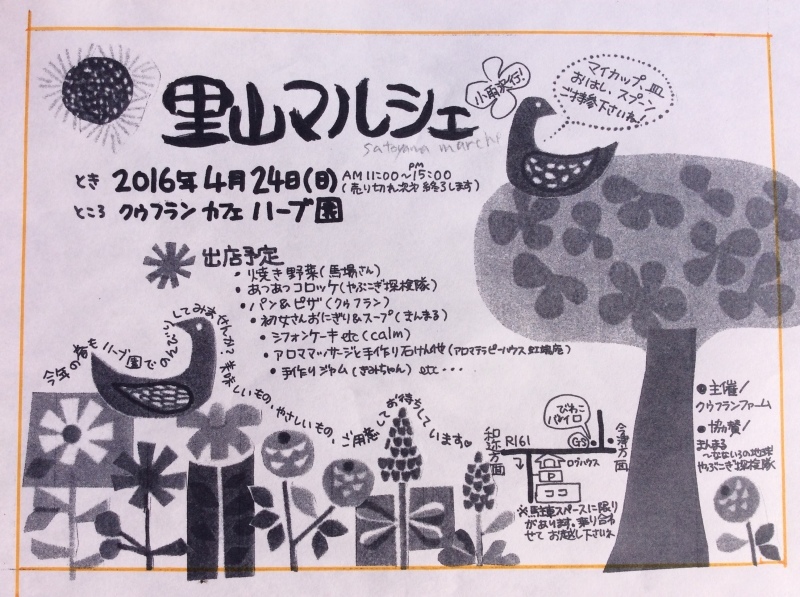 里山マルシェ
satoyama marche
小雨決行!
マイカップ、皿
おはし、スプーン
ご持参下さいね!
とき 2016年4月24日(日) AM11:00~PM15:00
(売り切れ次第終了します)
ところ クウフラン カフェ ハーブ園
出店予定
・焼き野菜(馬場さん)
・あつあつコロッケ(やぶこぎ探検隊)
・パン&ピザ(クウフラン)
・初女さんおにぎり&スープ(まんまる)
・シフォンケーキetc(calm)
・アロママッサージと手作り石けん他(アロマテラピーハウス 虹場庵)
・手作りジャム(きみちゃん) etc・・・
今年の春もハーブ園でのんびりしてみませんか?美味しいもの、やさしいもの、ご用意してお待ちしています♡
びわこ
パイロ
和迩方面
R161
GS
今津方面
ログハウス
P
ココ
※駐車スペースに限り
があります。乗り合わ
せてお越し下さいね
●主催/
クウフランファーム
●協賛/
まんまる
~なないろの地球
やぶこぎ探検隊